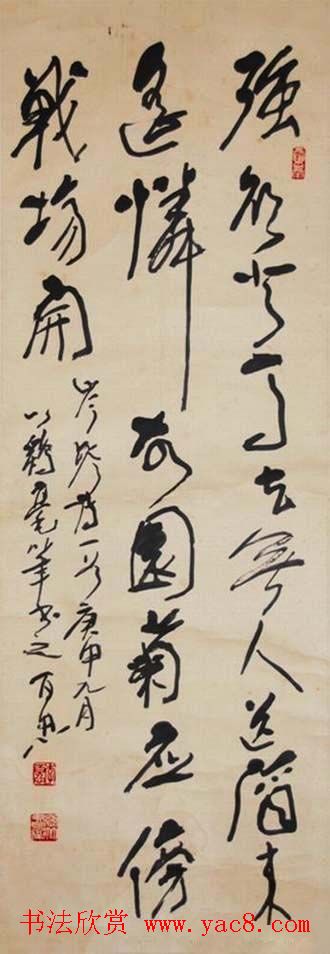 強欲登高去無人送酒来
遥憐故園菊应傍
戦場開
岑参诗一首庚申九月
以鶴毫筆书之
书法欣赏 www.yac8.com